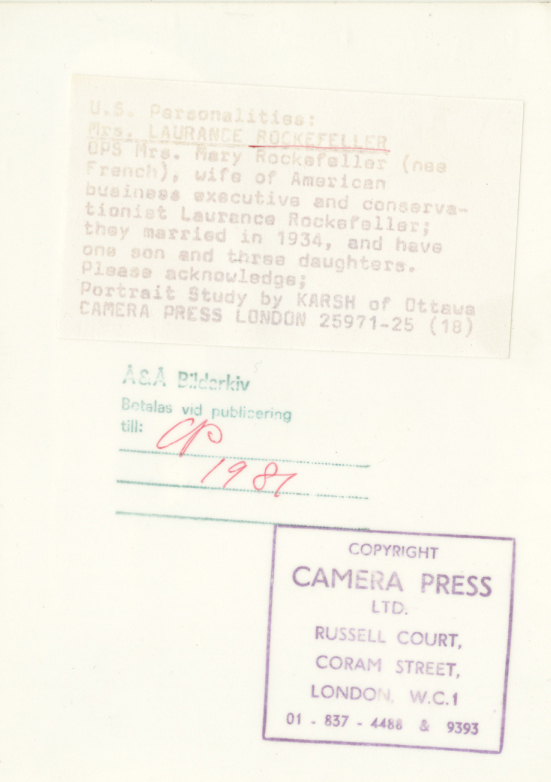 U.S. Personalities:
Mrs. LAURANCE ROCKEFELLER
OPS Mrs. Mary Rockefeller (nee
French), wife of American
business executive and conserva-
tionist Laurance Rockefeller;
they married in 1934, and have
one son and three daughters.
Please acknowledge;
Portrait Study by KARSH of Ottawa
CAMERA PRESS LONDON 25971-25 (18)
A&A Bildarkiv
Betalas vid publicering
till:
CP
1981
COPYRIGHT
CAMERA PRESS
LTD.
RUSSELL COURT,
CORAM STREET,
LONDON, W.C.1
01 - 837 - 4488 & 9393